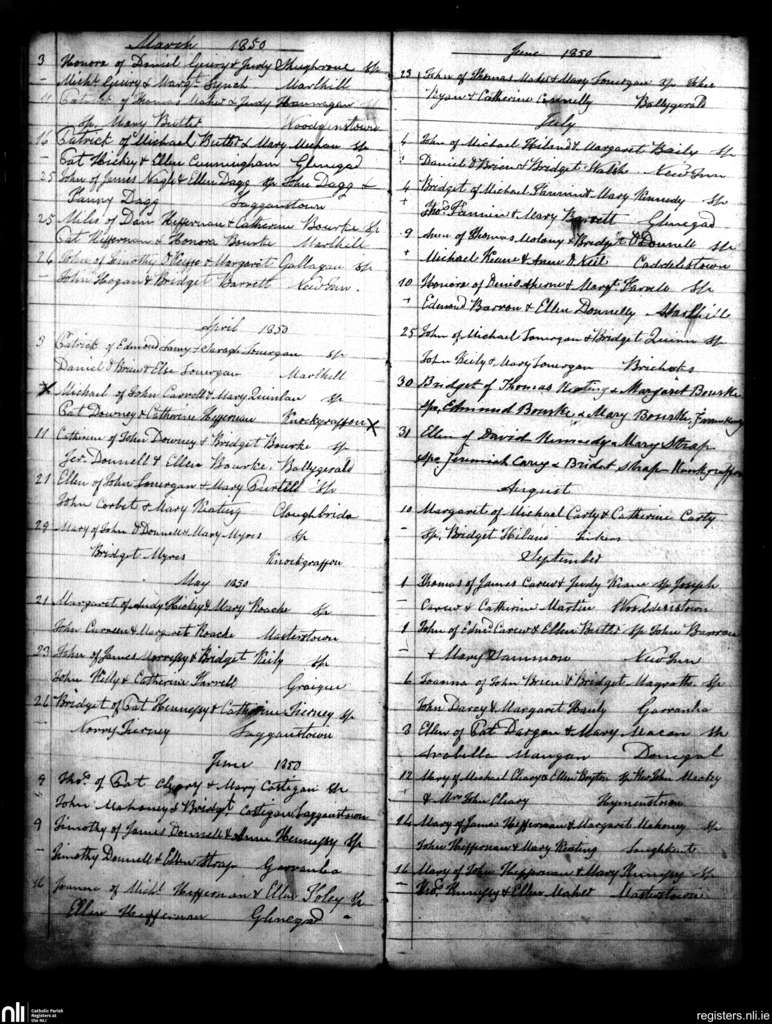 March 1850
3 Honora of Daniel Geary & Judy Shughrone Sp
- Michl Geary & Margt Lynch Marlhill
11 Patrick of Thomas Maher & Judy Hanragan
Sp. Mary Butler Woodgenstown
16 Patrick of Michael Butler & Mary Meehan Sp
- Pat Hickey & Ellen Cunningham Glenegad
25 John of James Nagle & Ellen Dagg Sp John Dagg &
Fanny Dagg Logganstown
25 Miles of Dan Heffernan & Catherine Bourke Sp
Pat Heffernan & Honora Bourke Marlhill
26 John of Timothy O'Keeffe & Margaret Gallagan Sp
- John Hogan & Bridget Barrett Newinn.
April 1850
3 Patrick of Edmond Lonergan Sp
Daniel O Brien & Ellen Lonergan Marlhill
X Michael of John Carroll & Mary Quinlan Sp
Pat Downey & Catherine Heffernan Knockgraffon X
11 Catherine of John Downey & Bridget Bourke Sp
Jer. Donnell & Ellen Bourke. Ballygerald
21 Ellen of John Lonergan & Mary Burtell Sp
John Corbet & Mary Keating Cloughbrida
29 Mary of John O Donnell & Mary Myres Sp
Bridget Myres Knockgraffon
May 1850
21 Margaret of Andy Hickey & Mary Roache Sp
John Curreen & Margaret Roache Masterstown
23 John of James Morrissy & Bridget Kiely Sp
John Kielly & Catherine Farrell Graigue
26 Bridget of Pat Hennessy & Catherine Tierney Sp
- Norry Tierney Logganstown
June 1850
9 Thos. of Pat Cleary & Mary Costigan Sp
- John Mahoney & Bridgt. Costigan Logganstown
9 Timothy of James Donnell & Anne Hennessy Sp
- Timothy Donnell & Ellen Strap Garranlea
16 Joanna of Michl Heffernan & Ellen Foley Sp
Ellen Heffernan Glenegad -
June 1850
23 John of Thomas Maher & Mary Lonergan Sp John
Ryan & Catherine Connelly Ballygerald
July
4 John of Michael Hiland & Margaret Baily Sp
Daniel O Brien & Bridget Walsh New Inn
4 Bridget of Michael Fannin & Mary Kennedy Sp
Thos Fannin & Mary Barrett Glenegad
9 Anne of Thomas Molony & Bridgt O Donnell Sp
Michael Keane & Anne O Neil Caddlestown
10 Honora of Denis Aherne & Margt Farrell Sp
Edmund Barron & Ellen Donnelly Marlhill
25 John of Michael Lonergan & Bridget Quinn Sp
John Kiely & Mary Lonergan
30 Bridget of Thomas Keating & Margaret Bourke
Sps. Edmund Bourke & Mary Bourke
31 Ellen of David Kennedy & Mary Strap
Sps Jeremiah Carey & Bridet Strap Knockgraffon
August
10 Margaret of Michael Carty & Catherine Carty
Sp. Bridget Hiland
September
1 Thomas of James Carew & Judy Keane Sp Joseph
- Carew & Catherine Martin
1 John of Edmd Carew & Ellen Butler Sp John Barron
& Mary Hammon New Inn
6 Joanna of John Brien & Bridget Magrath Sp
John Darcy & Margaret Hanly Garranlea
8 Ellen of Pat Dargan & Mary Meacan Sp
Arabella Mangan Donegal
12 Mary of Michael Cleary & Ellen Sp Revd John Meaky
- & Mrs John Cleary Hymenstown
14 Mary of James Heffernan & Margaret Mahoney Sp
John Heffernan & Mary Keating Loughkent
16 Mary of John Heffernan & Mary Hennessy Sp
- Thos. Hennessy & Ellen Maher Masterstown
nli
Catholic Parish
Registers at
the NLI
registers.nli.ie